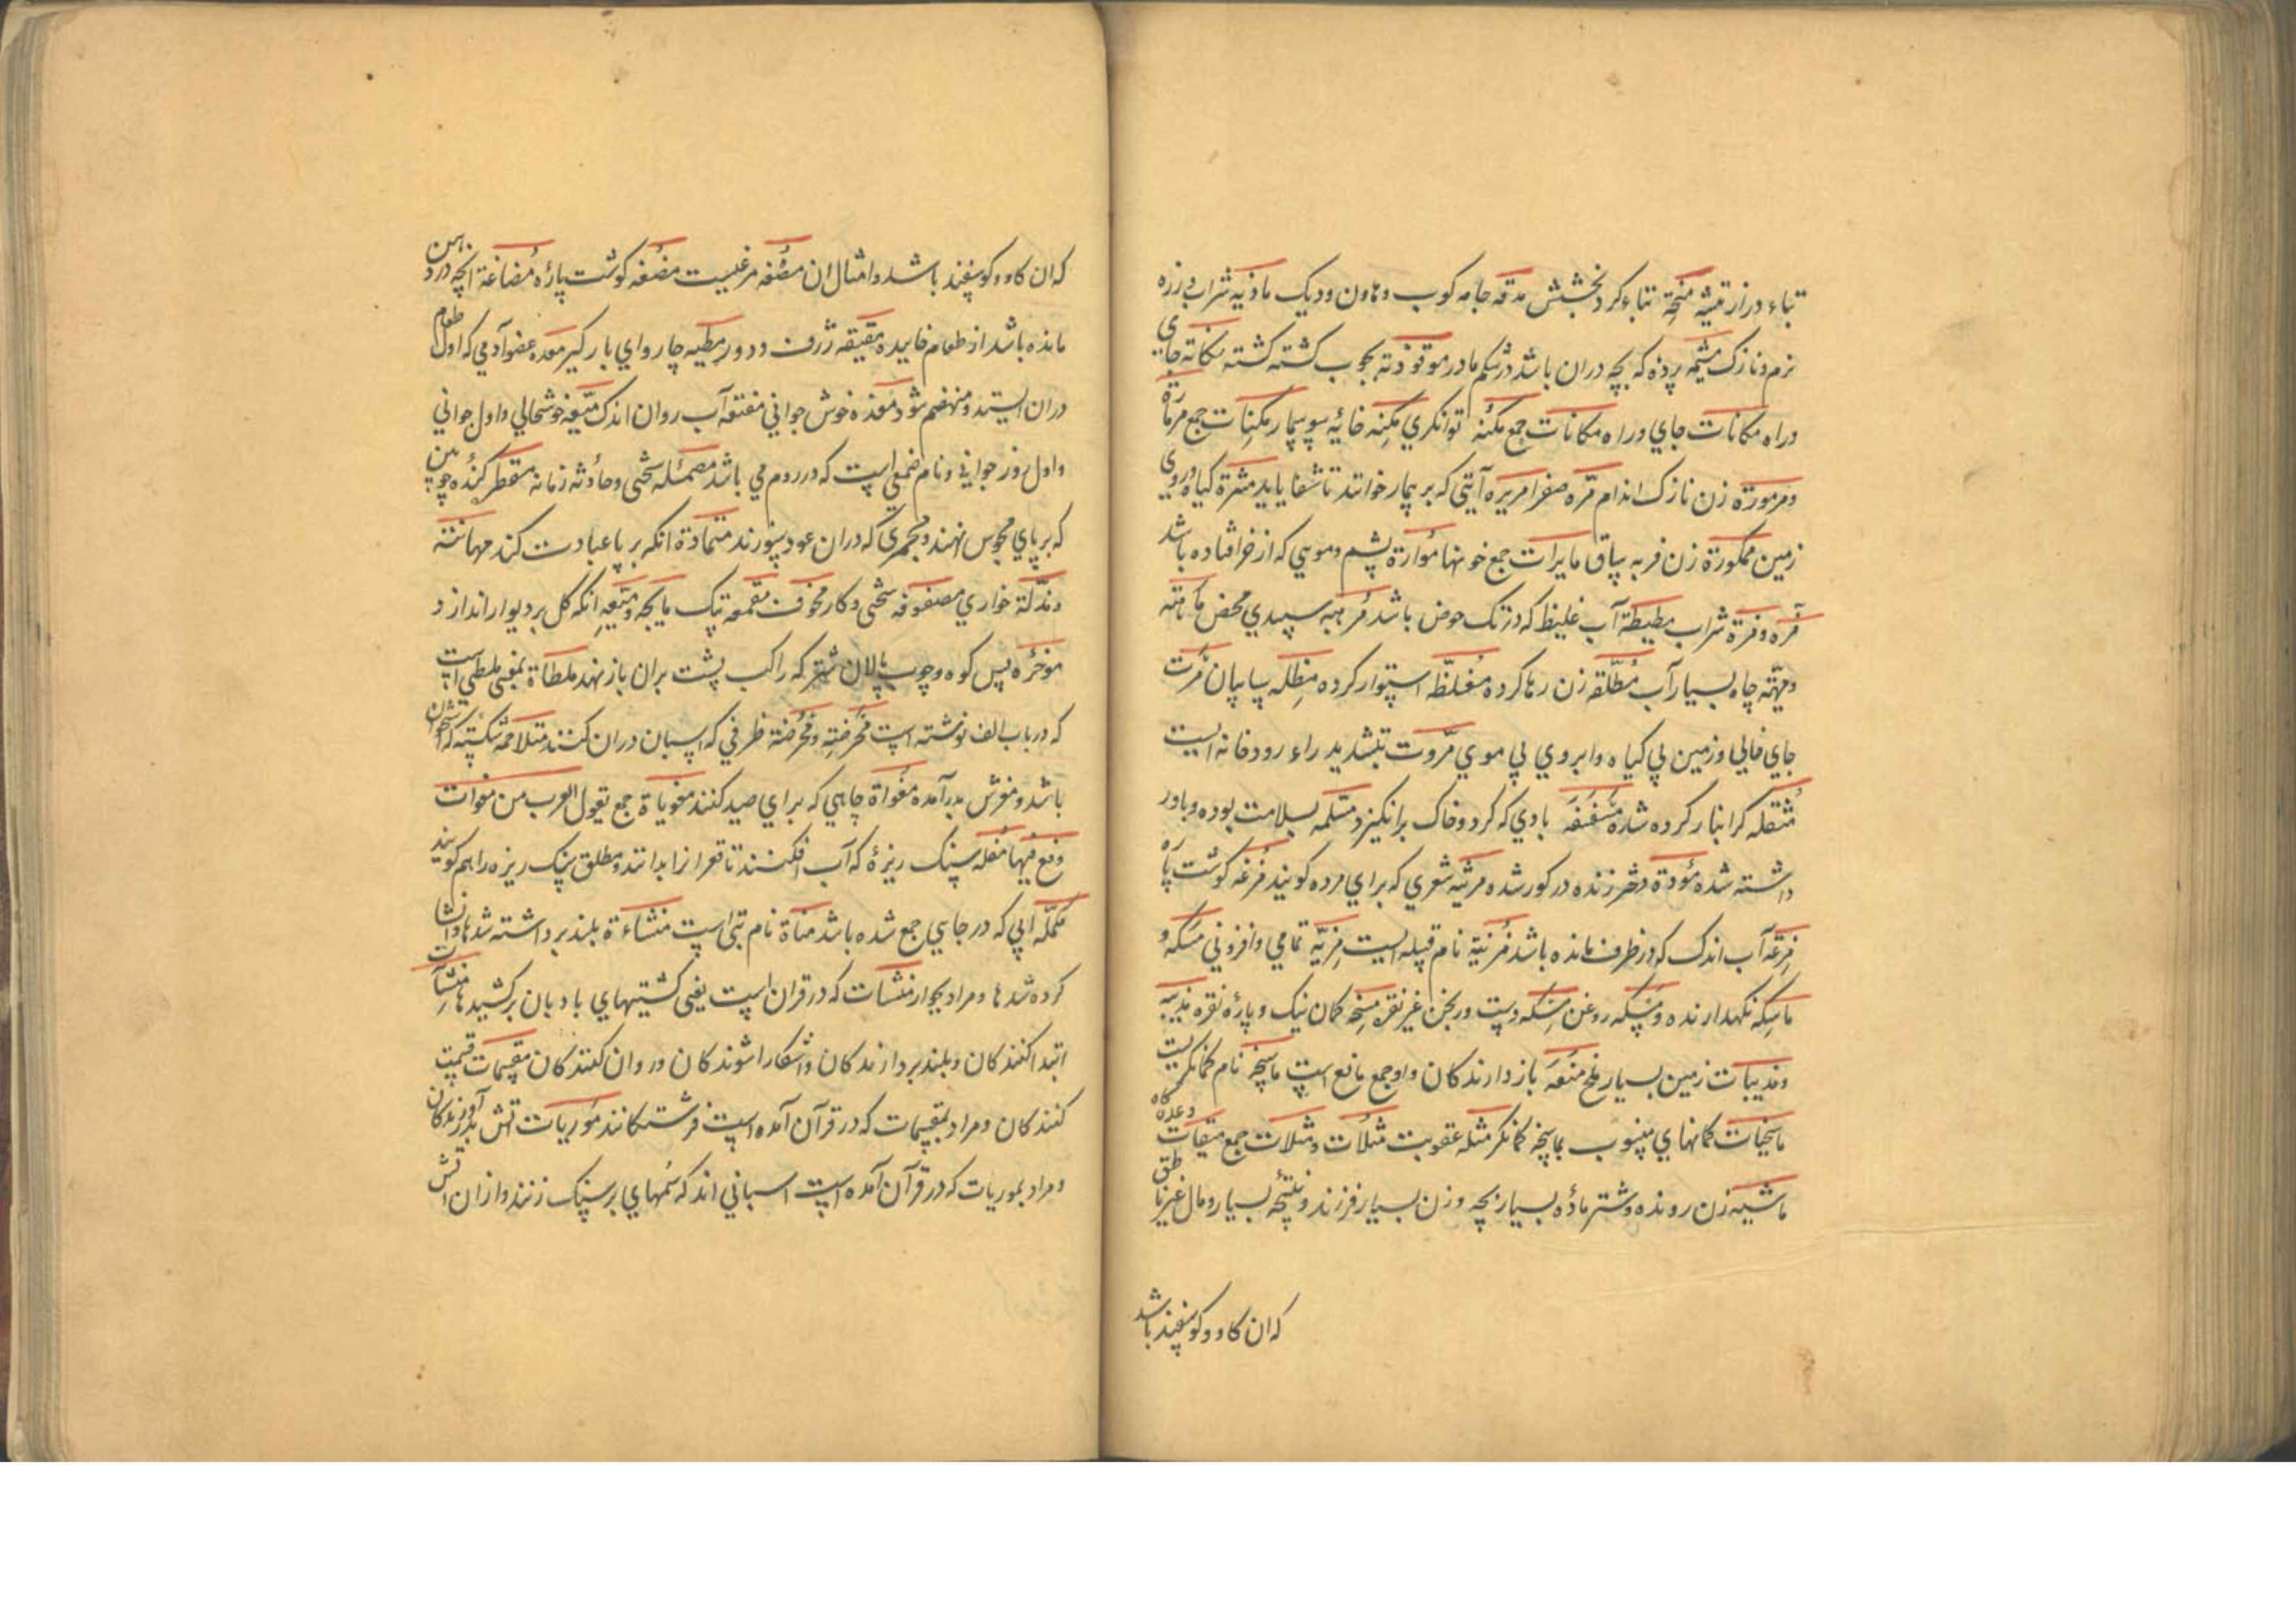 تباء دراز تیشه منحة تباء کرد بخشش مدقه جامه کوب و هاون و دیک ماذیه شراب و زره
نرم و نازک مشیمه پرده که بچه دران باشد در شکم مادر موقوذته بچوب کشته کشته مکانة جای
و راه مکانات جاي و راه مکانات جمع مکنة توانکري مکنه خائیه سوسمار مکنات جمع مرمارة
و مرمورة زن نازک اندام مره صفرا مریره آیتي که بر بیمار خوانند تا شفا یابد مثرة کیاه و روی
زمین ممکورة زن فربه ساق مایرات جمع خونها موارة پشم و مویي که از خر افتاده باشد
مزه و مزة شراب مطیطة آب غلیظ که در تک حوض باشد مرهه سپیدي محض ماهته
و میهة چاه بسیار آب مطلقه زن رها کرده مغلظه استوار کرده مظله بیابان مرت
جاي خالي و زمین بي کیاه و ابروي بي موي مروت بتشدید راء رودخانه ایست
مثقله کرانبار کرده شده مسفسفه بادي که کرد و خاک برانکیزد مسلمه بسلامت بوده و باور
داشته شده مؤدة دختر زنده در کور شده مرثیه شعري که براي مرده کویند مزعه کوشت پاره
مزعه آب اندک که در ظرف مانده باشد مزنیة نام قبیله ایست مزیه تمامي و افزوني مسکه و
ماسکه نکهدارنده و مسکه روغن مسکه دست ورنجن غیر نقره مسحه کمان نیک و پاره نقره مذیبه
و مذیبات زمین بسیار ملخ منعه بازدارندکان و او جمع مانع است ماسخه نام کمانکریست
ماسخیات کمانهاي منسوب بماسخه کمانکر مثله عقوبت مثلات و مثلات جمع میقات وعده کاه
ماشیه زن رونده و شتر ماده بسیار بچه و زن بسیار فرزند و نتیجه بسیار و مال غیر ناطق
که ان کاو و کوسفند باشد
که ان کاو و کوسفند باشد و امثال ان مضغه مرغیست مضغه کوشت پاره مضاغة انچه در دهن
مانده باشد از طعام خاییده مقیقه ژرف و دور مطیه چارواي بارکیر معده عضو آدمي که اول طعام
دران ایستد و منهضم شود مغذه خوش جواني منتقه آب روان اندک میعه خوشحالي و اول جواني
و اول روز جوانی و نام صمغي است که در روم مي باشد مصمئله سختی و حادثه زمانه مقطر کنده چوبین
که بر پاي محبوس نهند و مجمري که دران عود سوزند متمادة انکه بر پا عبادت کند مهانته
و مذلة خواري مصفوفه سختی و کار مخوف مقمعه تپک مایجه و میعه انکه کل بر دیوار اندازد
موخره پس کوه و چوب پالان شتر که راکب پشت بران بازنهد ملطاة بمعنی ملطی است
که در باب الف نوشته است محرضة و محرضة ظرفي که اسبان دران کنند متلاحمه شکسته که استخوان
باشد و مغزش بدر آمده مغواة چاهي که براي صید کنند مغویاة جمع تقول العرب من مغوات
وقع فیها مقله سنک ریزه که آب افکنند تا قعر ازا بدانند و مطلق سنک ریزه را هم کویند
مکله ابي که در جایي جمع شده باشد مناة نام بتی است منشاءة بلند برداشته شدها و انشا
کرده شدها و مراد بجوار منشات که در قران است یعنی کشتیهاي بادبان برکشیدها منشآت
ابتدا کنندکان و بلند بردارندکان و اشکارا شوندکان و روان کنندکان مقسمات قسمت
کنندکان و مراد بمقسمات که در قرآن آمده است فرشتکانند موریات اتش بدر آورندکان
و مراد بموریات که در قرآن آمده است اسباني اند که سمهاي بر سنک زنند و ازان اتش